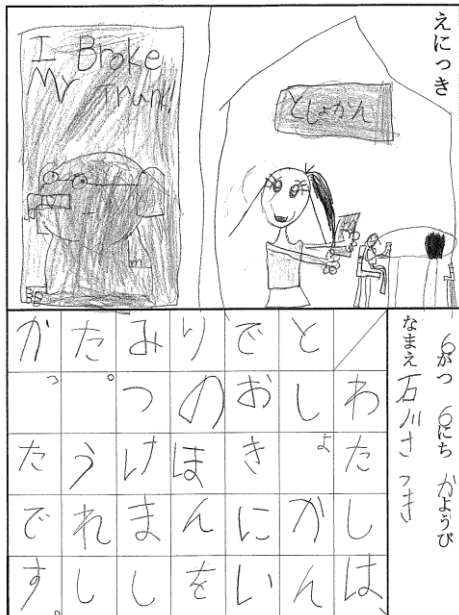 えにっき
としょかん
I Broke
My Trunk
6がつ 6にち かようび
なまえ 石川さつき
わたしは、
としょかん
でおきにい
りのほんを
みつけまし
た。うれし
かったです。